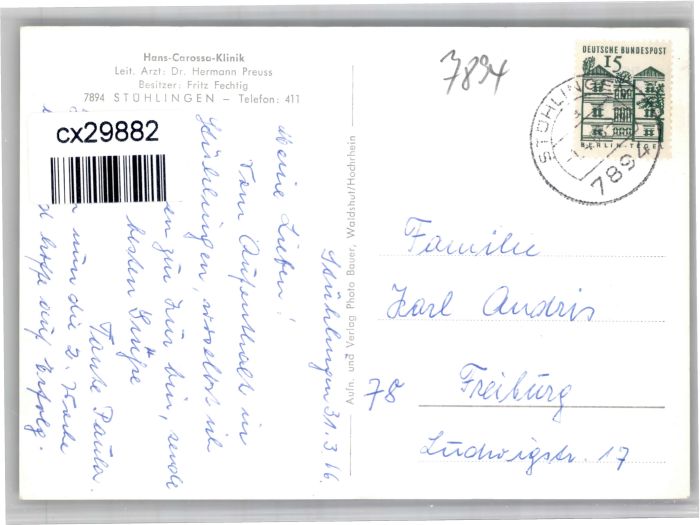 Hans-Carossa-Klinik
Leit. Arzt: Dr. Hermann Preuss
Besitzer: Fritz Fechtig
7894 STÜHLINGEN – Telefon: 411
cx29882
7894
DEUTSCHE BUNDESPOST
15
BERLIN-TEGEL
STÜHLINGEN
7894
Aufn. und Verlag Photo Bauer, Waldshut/Hochrhein
Stühlingen 31.3.66
Meine Lieben!
Vom Aufenthalt in
Stühlingen, woselbst ich
zur Kur bin, sende
besten Grüße
Tante Paula.
nun die 2. Woche
hoffe auf Erfolg.
Familie
Karl Andris
78 Freiburg
Ludwigstr. 17